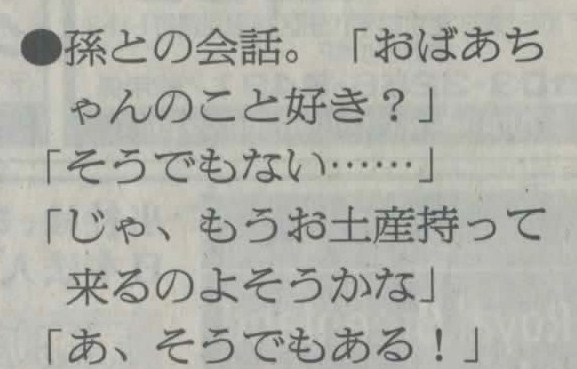 ●孫との会話。「おばあち
ゃんのこと好き？」
「そうでもない……」
「じゃ、もうお土産持って
来るのよそうかな」
「あ、そうでもある！」